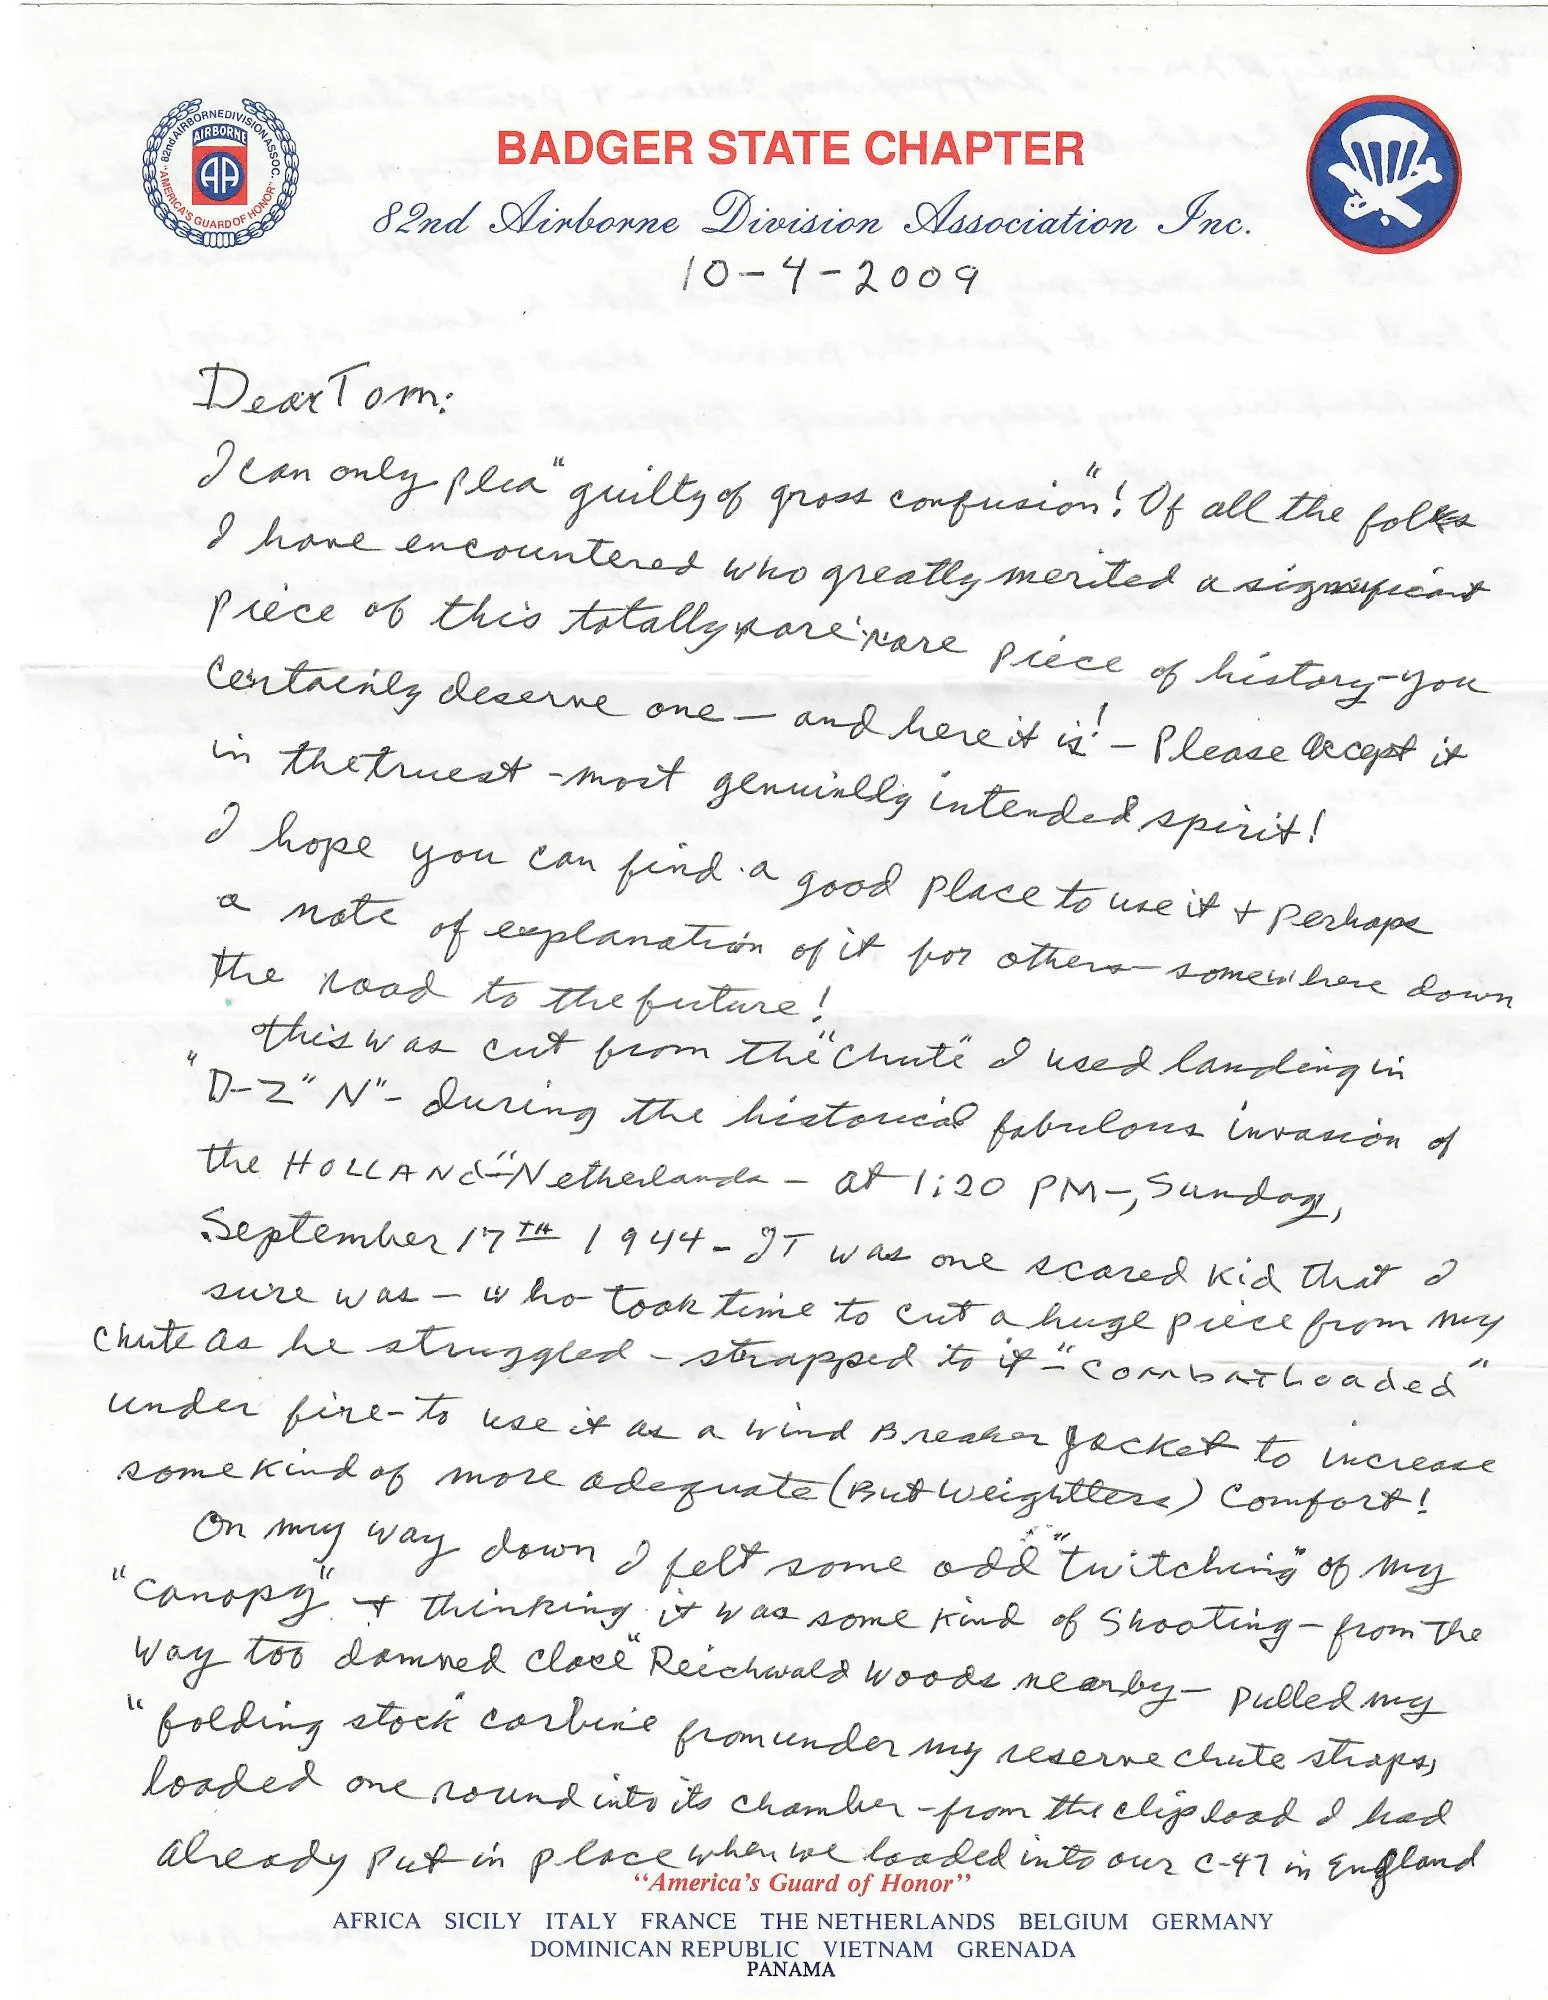 82nd AIRBORNE DIVISION ASSOC.
AIRBORNE
AA
"AMERICA'S GUARD OF HONOR"
BADGER STATE CHAPTER
82nd Airborne Division Association Inc.
10-4-2009
Dear Tom:
I can only plea "guilty of gross confusion"! Of all the folks
I have encountered who greatly merited a significant
piece of this totally rare rare piece of history-you
certainly deserve one — and here it is! - Please accept it
in the truest - most genuinlly intended spirit!
I hope you can find a good place to use it + perhaps
a note of explanation of it for others - somewhere down
the road to the future!
This was cut from the "chute" I used landing in
"D-Z" N" - during the historical fabulous invasion of
the HOLLANd"-Netherlands - at 1:20 PM-, Sunday,
September 17TH 1944 - IT was one scared kid that I
sure was - who took time to cut a huge piece from my
chute as he struggled - strapped to it - "combat loaded"
under fire - to use it as a wind Breaker jacket to increase
some kind of more adequate (But weightless) comfort!
On my way down I felt some odd "twitching" of my
"canopy" + thinking it was some kind of shooting - from the
way too damned close "Reichwald woods nearby - pulled my
"folding stock" carbine from under my reserve chute straps,
loaded one round into its chamber - from the clip load I had
already put in place when we loaded into our C-47 in England
"America's Guard of Honor"
AFRICA SICILY ITALY FRANCE THE NETHERLANDS BELGIUM GERMANY
DOMINICAN REPUBLIC VIETNAM GRENADA
PANAMA